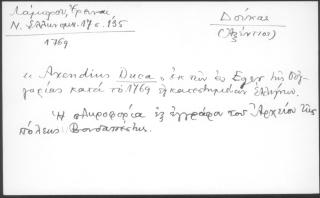 Λάμπρου, Σπυρίδ. Δούκας
Ν. Ελληνομ. 17 σ. 195 (Αξέντιος)
1769
« Axendius Duca, εκ των εις Eger της Ουγ-
γαρίας κατά το 1769 εγκατεστημένων Ελλήνων.
Η πληροφορία εξ εγγράφου του Αρχείου της
πόλεως Βουδαπέστης.